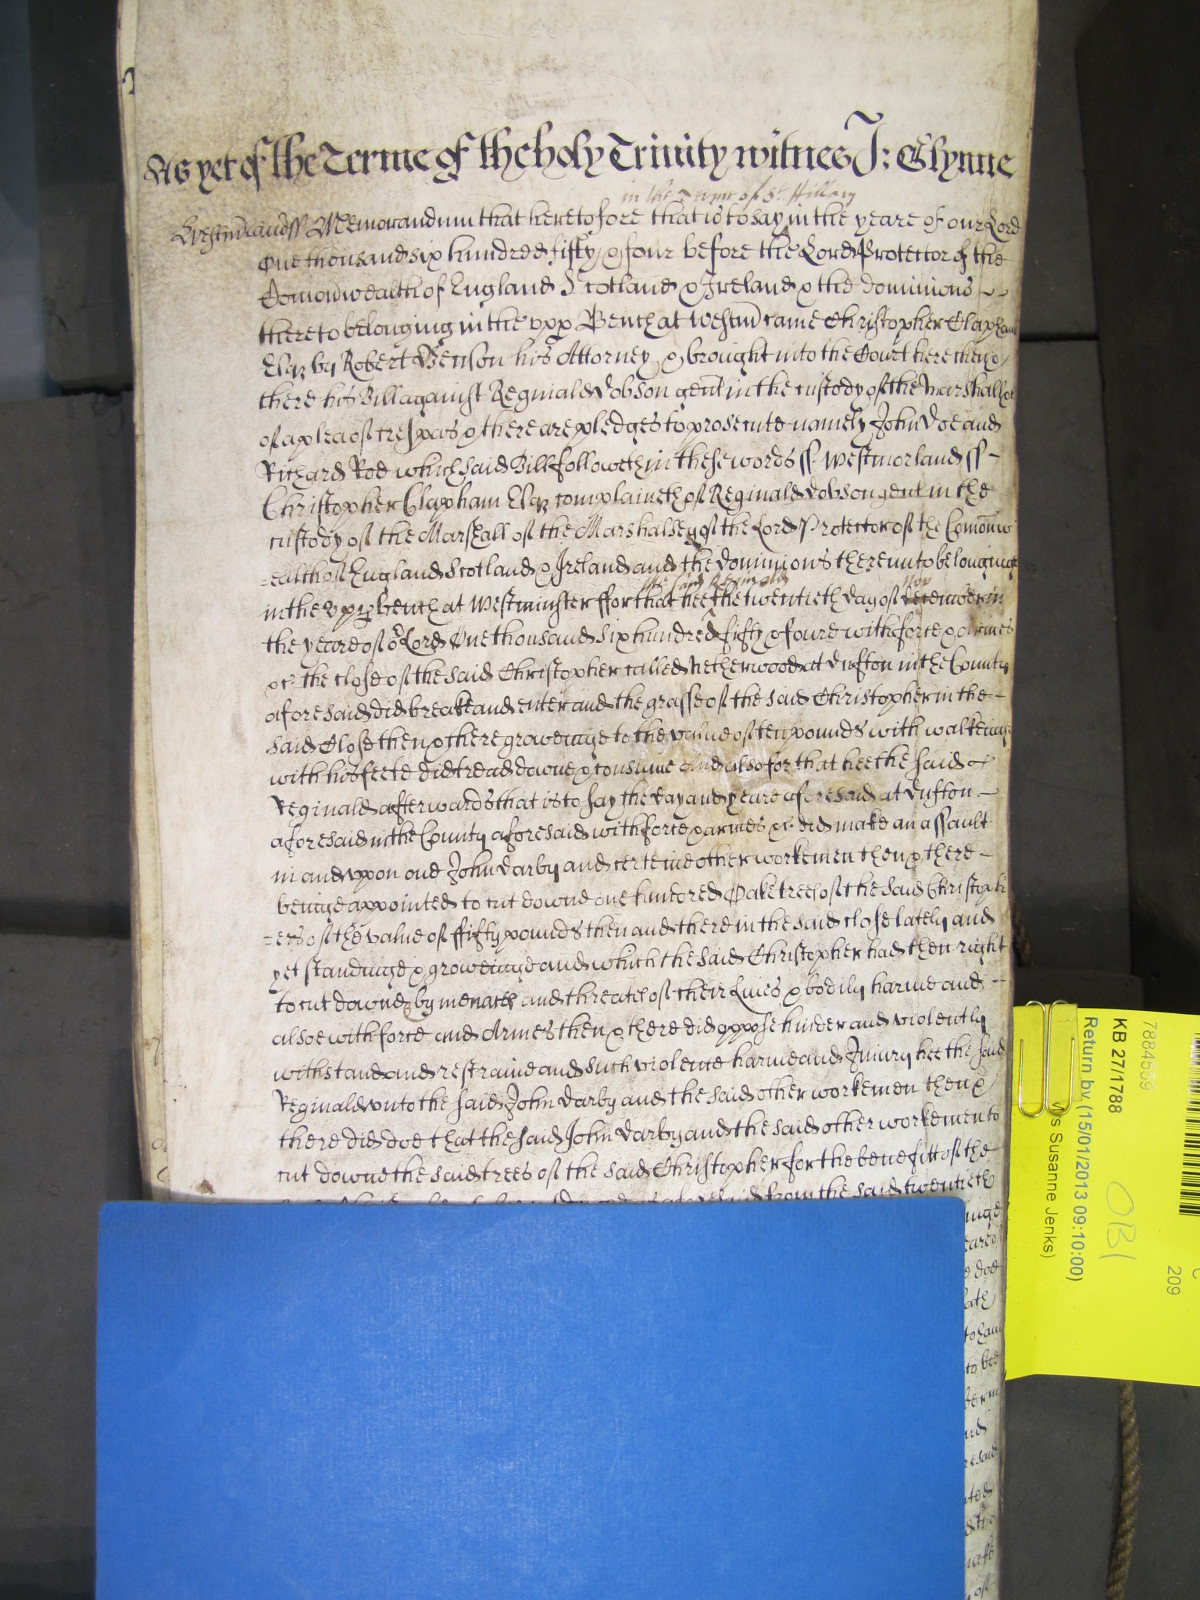 As yet of the Terme of the holy Trinity witnes J: Glynne
in the Terme of St Hillary
Westmerland ss Memorandum that heretofore that is to say in the yeare of our Lord
One thousand six hundred fifty & four before the Lord Protector of the
Comonwealth of England Scotland & Ireland & the dominions
thereto belonging in the vpp Bench at Westm came Christopher Clapham
Esqr by Robert Benson his Attorney & brought into the Court here then &
there his Bill against Reginald Dobson gent in the custody of the Marshall &c
of a plea of trespas & there are pledges to prosecute namely John Doe and
Richard Roe which said Bill followeth in these words ss Westmorland ss
Christopher Clapham Esqr complaineth of Reginald Dobson gent in the
custody of the Marshall of the Marshalsey of the Lord Protector of the Comonw
=ealth of England Scotland & Ireland and the dominions thereunto belonginge
the said Reginald Nov
in the vpper bench at Westminster ffor that hee the twentieth day of Decemberin
the yeare of or Lord One thousand six hundred fifty & foure with force & armes
&c the close of the said Christopher called Netherwood at Dufton in the County
aforesaid did breake and enter and the grasse of the said Christopher in the
said Close then & there groweinge to the value of ten pounds with walkeinge
with his feete did tread downe & consume And also for that hee the said
Reginald afterwards that is to say the day and yeare aforesaid at Dufton
aforesaid in the County aforesaid with force & armes &c did make an assault
in and vpon one John Darby and certeine other workemen then & there
beinge appointed to cut downe one hundred Oake trees of the said Christoph
=ers of the value of ffifty pounds then and there in the said close lately and
yet standinge & groweinge and which the said Christopher had then right
to cut downe by menaces and threates of their Lives & bodily harme and
alsoe with force and Armes then & there did oppose hinder and violently
withstand and restraine and such violence harme and Iniury hee the said
Reginald vnto the said John Darby and the said other workemen then &
there did doe that the said John Darby and the said other workemen to
cut downe the said trees of the said Christopher for the benefitt of the
from the said twentieth
7884559
KB 27/1788
Return by (15/01/2013 09:10:00)
s Susanne Jenks)
OB1
209